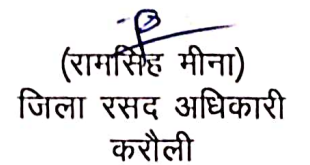 (रामसिंह मीना)
जिला रसद अधिकारी
करौली